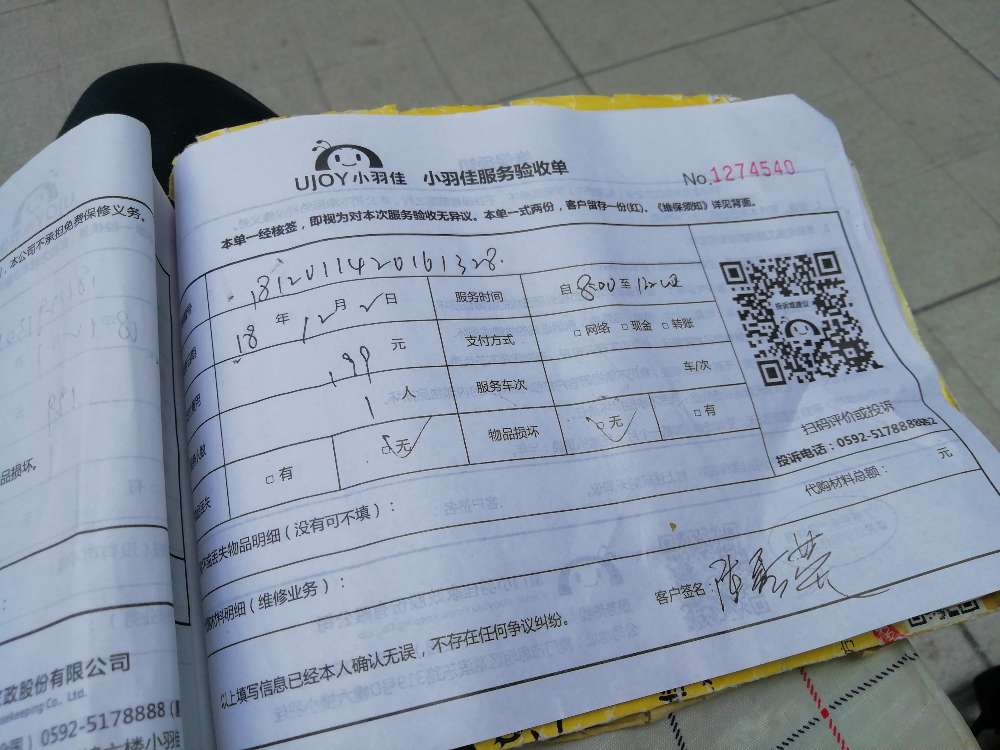 UJOY小羽佳 小羽佳服务验收单 No.1274540
本单一经核签，即视为对本次服务验收无异议。本单一式两份，客户留存一份(红)。《维保须知》详见背面。
1812011420161328.
18 年 12 月 2 日 服务时间 自 8:00 至 12:00
199 元 支付方式 □ 网络 □ 现金 □ 转账
1 人 服务车次 车/次
□ 有 □ 无 物品损坏 □ 无 □ 有
投诉或建议
扫码评价或投诉
投诉电话：0592-5178888
丢失物品明细（没有可不填）：
代购材料总额： 元
材料明细（维修业务）：
客户签名：
以上填写信息已经本人确认无误，不存在任何争议纠纷。
，本公司不承担免费保修义务。
品损坏。
政股份有限公司
Co., Ltd.
0592-5178888
六楼小羽